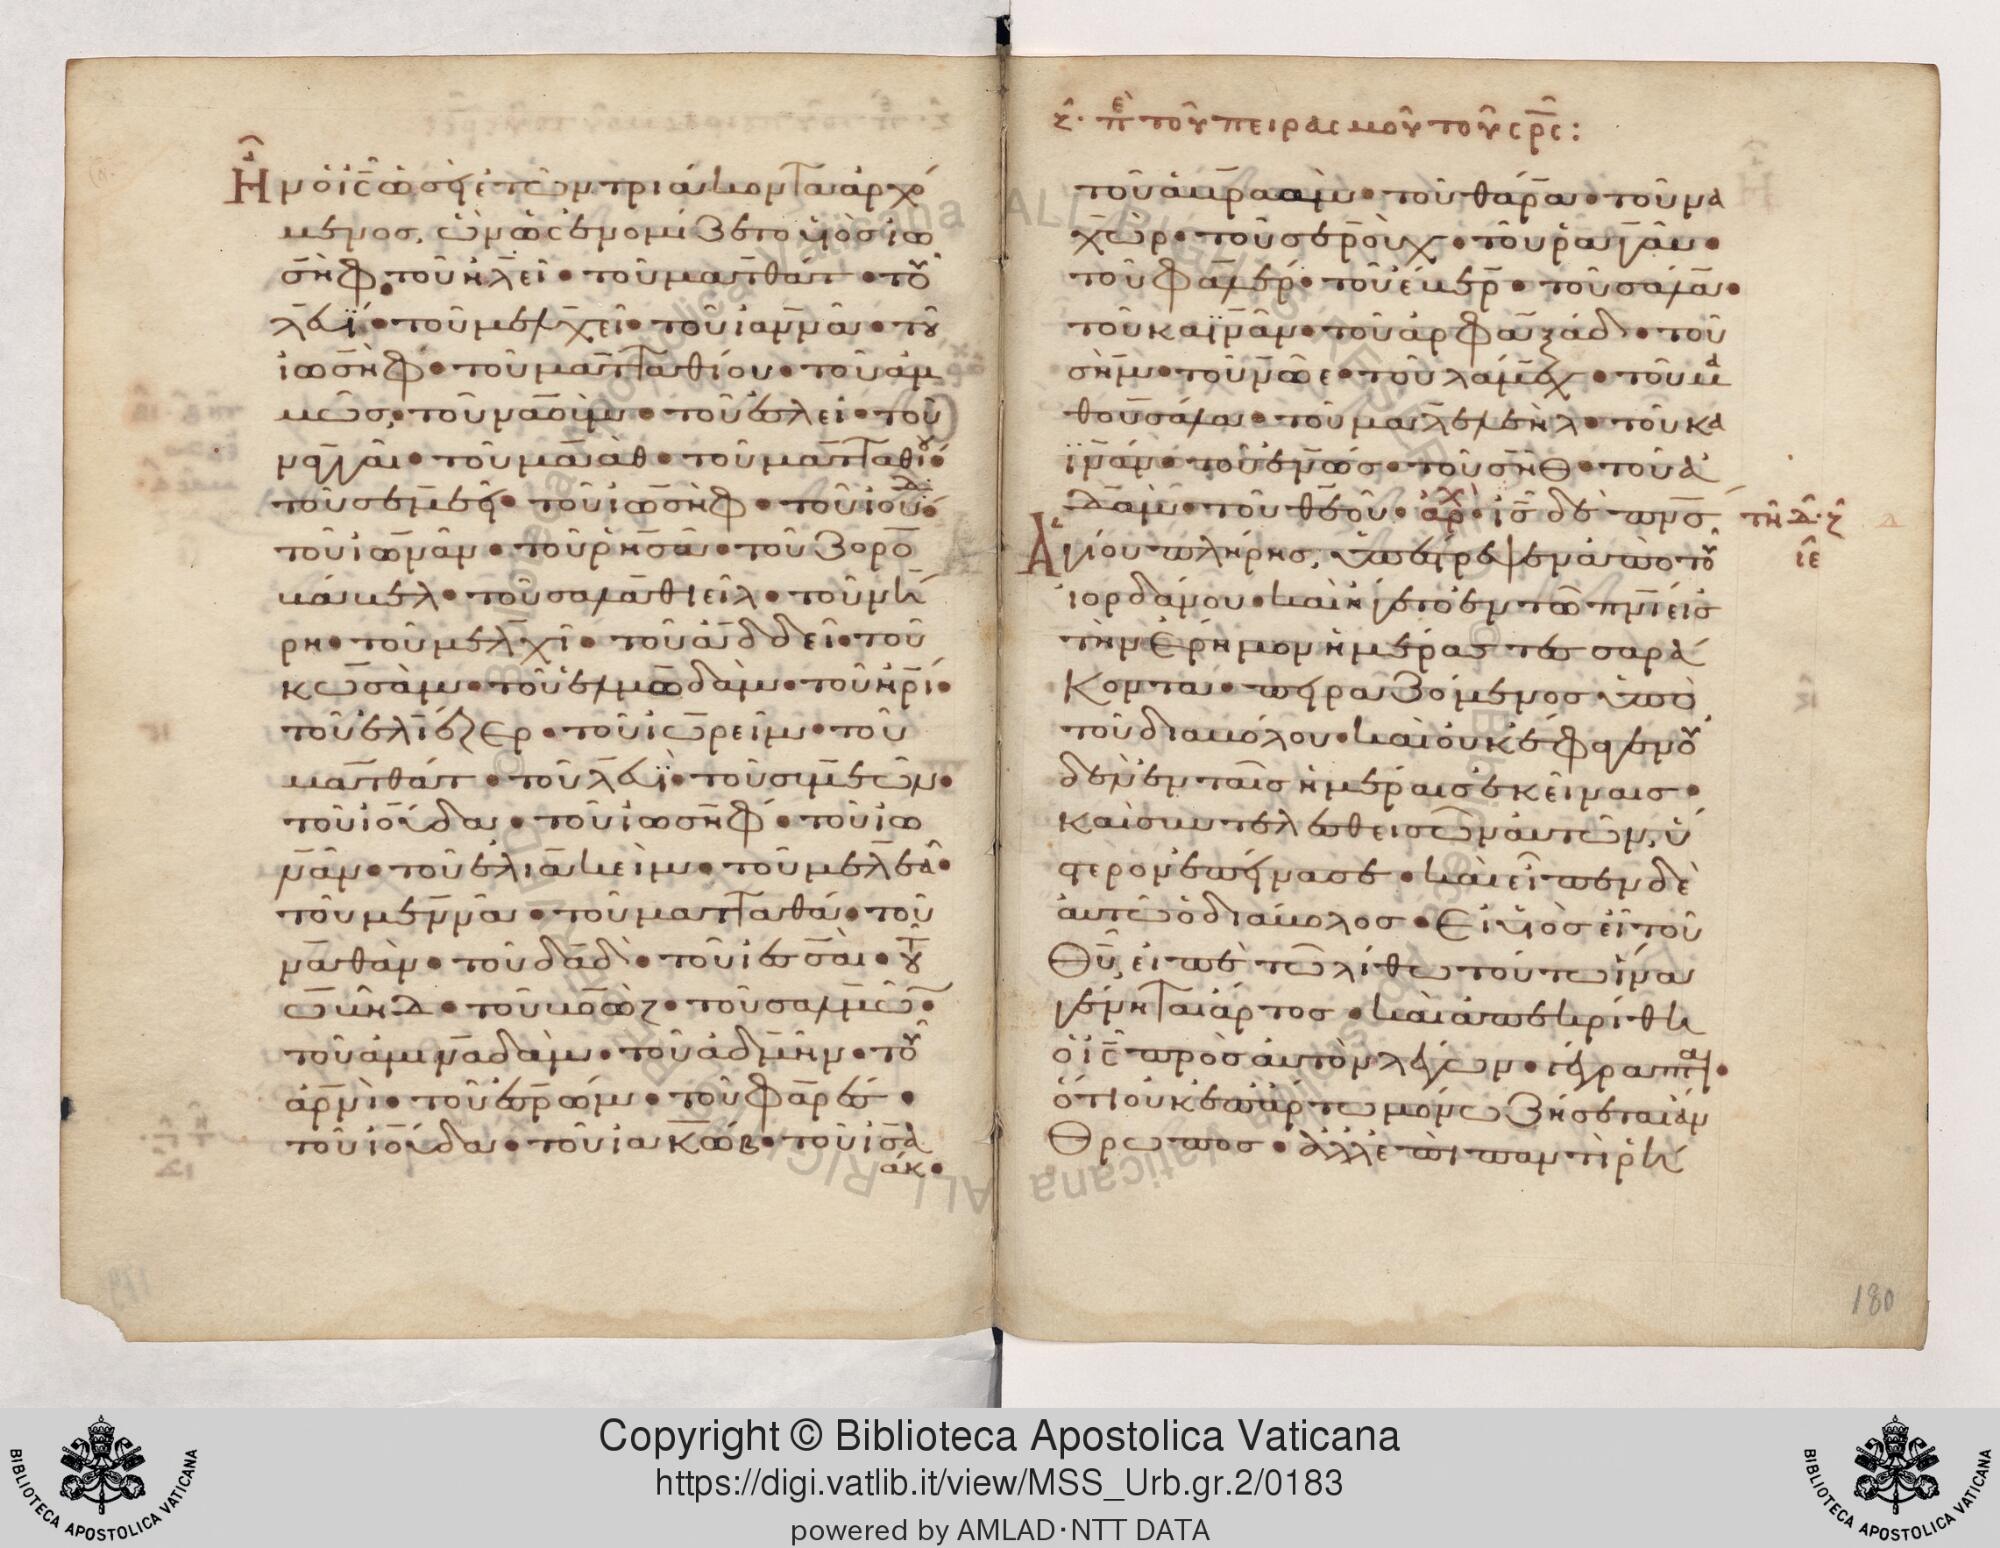 Ἦν ὁ ἰς ὡσεὶ ἐτῶν τριάκοντα ἀρχό
μενος, ὢν ὡς ἐνομίζετο υἱὸς ἰω
σὴφ, τοῦ ἡλεὶ • τοῦ ματθὰτ • τοῦ
λευΐ • τοῦ μελχεὶ • τοῦ ἰαννὰ • τοῦ
ἰωσὴφ • τοῦ ματταθίου • τοῦ ἀμ
μὼς • τοῦ ναοὺμ • τοῦ ἐσλεὶ • τοῦ
ναγγαὶ • τοῦ μαὰθ • τοῦ ματταθίου •
τοῦ σεμεεὶ • τοῦ ἰωσὴφ • τοῦ ἰούδα •
τοῦ ἰωνὰν • τοῦ ῥησὰ • τοῦ ζορο
βάβελ • τοῦ σαλαθιεὶλ • τοῦ νη
ρη • τοῦ μελχὶ • τοῦ ἀδδεὶ • τοῦ
κωσὰμ • τοῦ ἐλμωδὰμ • τοῦ ἠρί •
τοῦ ἐλιέζερ • τοῦ ἰωρεὶμ • τοῦ
ματθὰτ • τοῦ λευΐ • τοῦ σιμεὼν •
τοῦ ἰούδα • τοῦ ἰωσὴφ • τοῦ ἰω
νὰν • τοῦ ἐλιακεὶμ • τοῦ μελεᾶ •
τοῦ μεννὰ • τοῦ ματταθὰ • τοῦ
ναθὰν • τοῦ δαδ • τοῦ ἰεσσαὶ • τοῦ
ὠβὴδ • τοῦ βοὸζ • τοῦ σαλμὼν •
τοῦ ἀμιναδὰμ • τοῦ ἀδμὴν • τοῦ
ἀρνὶ • τοῦ ἐσρὼμ • τοῦ φαρὲς •
τοῦ ἰούδα • τοῦ ἰακὼβ • τοῦ ἰσα
άκ •
ζ • περὶ τοῦ πειρασμοῦ τοῦ σρς :
τοῦ ἀβραὰμ • τοῦ θάρα • τοῦ να
χὼρ • τοῦ σεροὺχ • τοῦ ῥαγὰβ •
τοῦ φαλὲκ • τοῦ ἔβερ • τοῦ σάλα •
τοῦ καϊνὰν • τοῦ ἀρφαξάδ • τοῦ
σὴμ • τοῦ νῶε • τοῦ λάμεχ • τοῦ μα
θουσάλα • τοῦ μαλελεὴλ • τοῦ κα
ϊνάν • τοῦ ἐνώς • τοῦ σὴθ • τοῦ ἀ
δὰμ • τοῦ θεοῦ • ἀρχ • ἰς δὲ πνς
τῇ δ ζ
ιε
Ἁγίου πλήρης, ὑπέστρεψεν ἀπὸ τοῦ
ἰορδάνου • καὶ ἤγετο ἐν τῷ πνι εἰς
τὴν ἔρημον ἡμέρας τεσσαρά
κοντα • πειραζόμενος ὑπὸ
τοῦ διαβόλου • καὶ οὐκ ἔφαγεν οὐ
δὲν ἐν ταῖς ἡμέραις ἐκείναις •
καὶ συντελεσθεισῶν αὐτῶν, ὕ
στερον ἐπείνασε • καὶ εἶπεν δὲ
αὐτῷ ὁ διάβολος • Εἰ υἱὸς εἶ τοῦ
θυ, εἰπὲ τῷ λίθῳ τούτῳ ἵνα
γένηται ἄρτος • καὶ ἀπεκρίθη
ὁ ἰς πρὸς αὐτὸν λέγων • γέγραπται •
ὅτι οὐκ ἐπ' ἄρτῳ μόνῳ ζήσεται ἄν
θρωπος • ἀλλ' ἐπὶ παντὶ ῥή
180
Copyright © Biblioteca Apostolica Vaticana
https://digi.vatlib.it/view/MSS_Urb.gr.2/0183
powered by AMLAD·NTT DATA
BIBLIOTECA APOSTOLICA VATICANA
BIBLIOTECA APOSTOLICA VATICANA